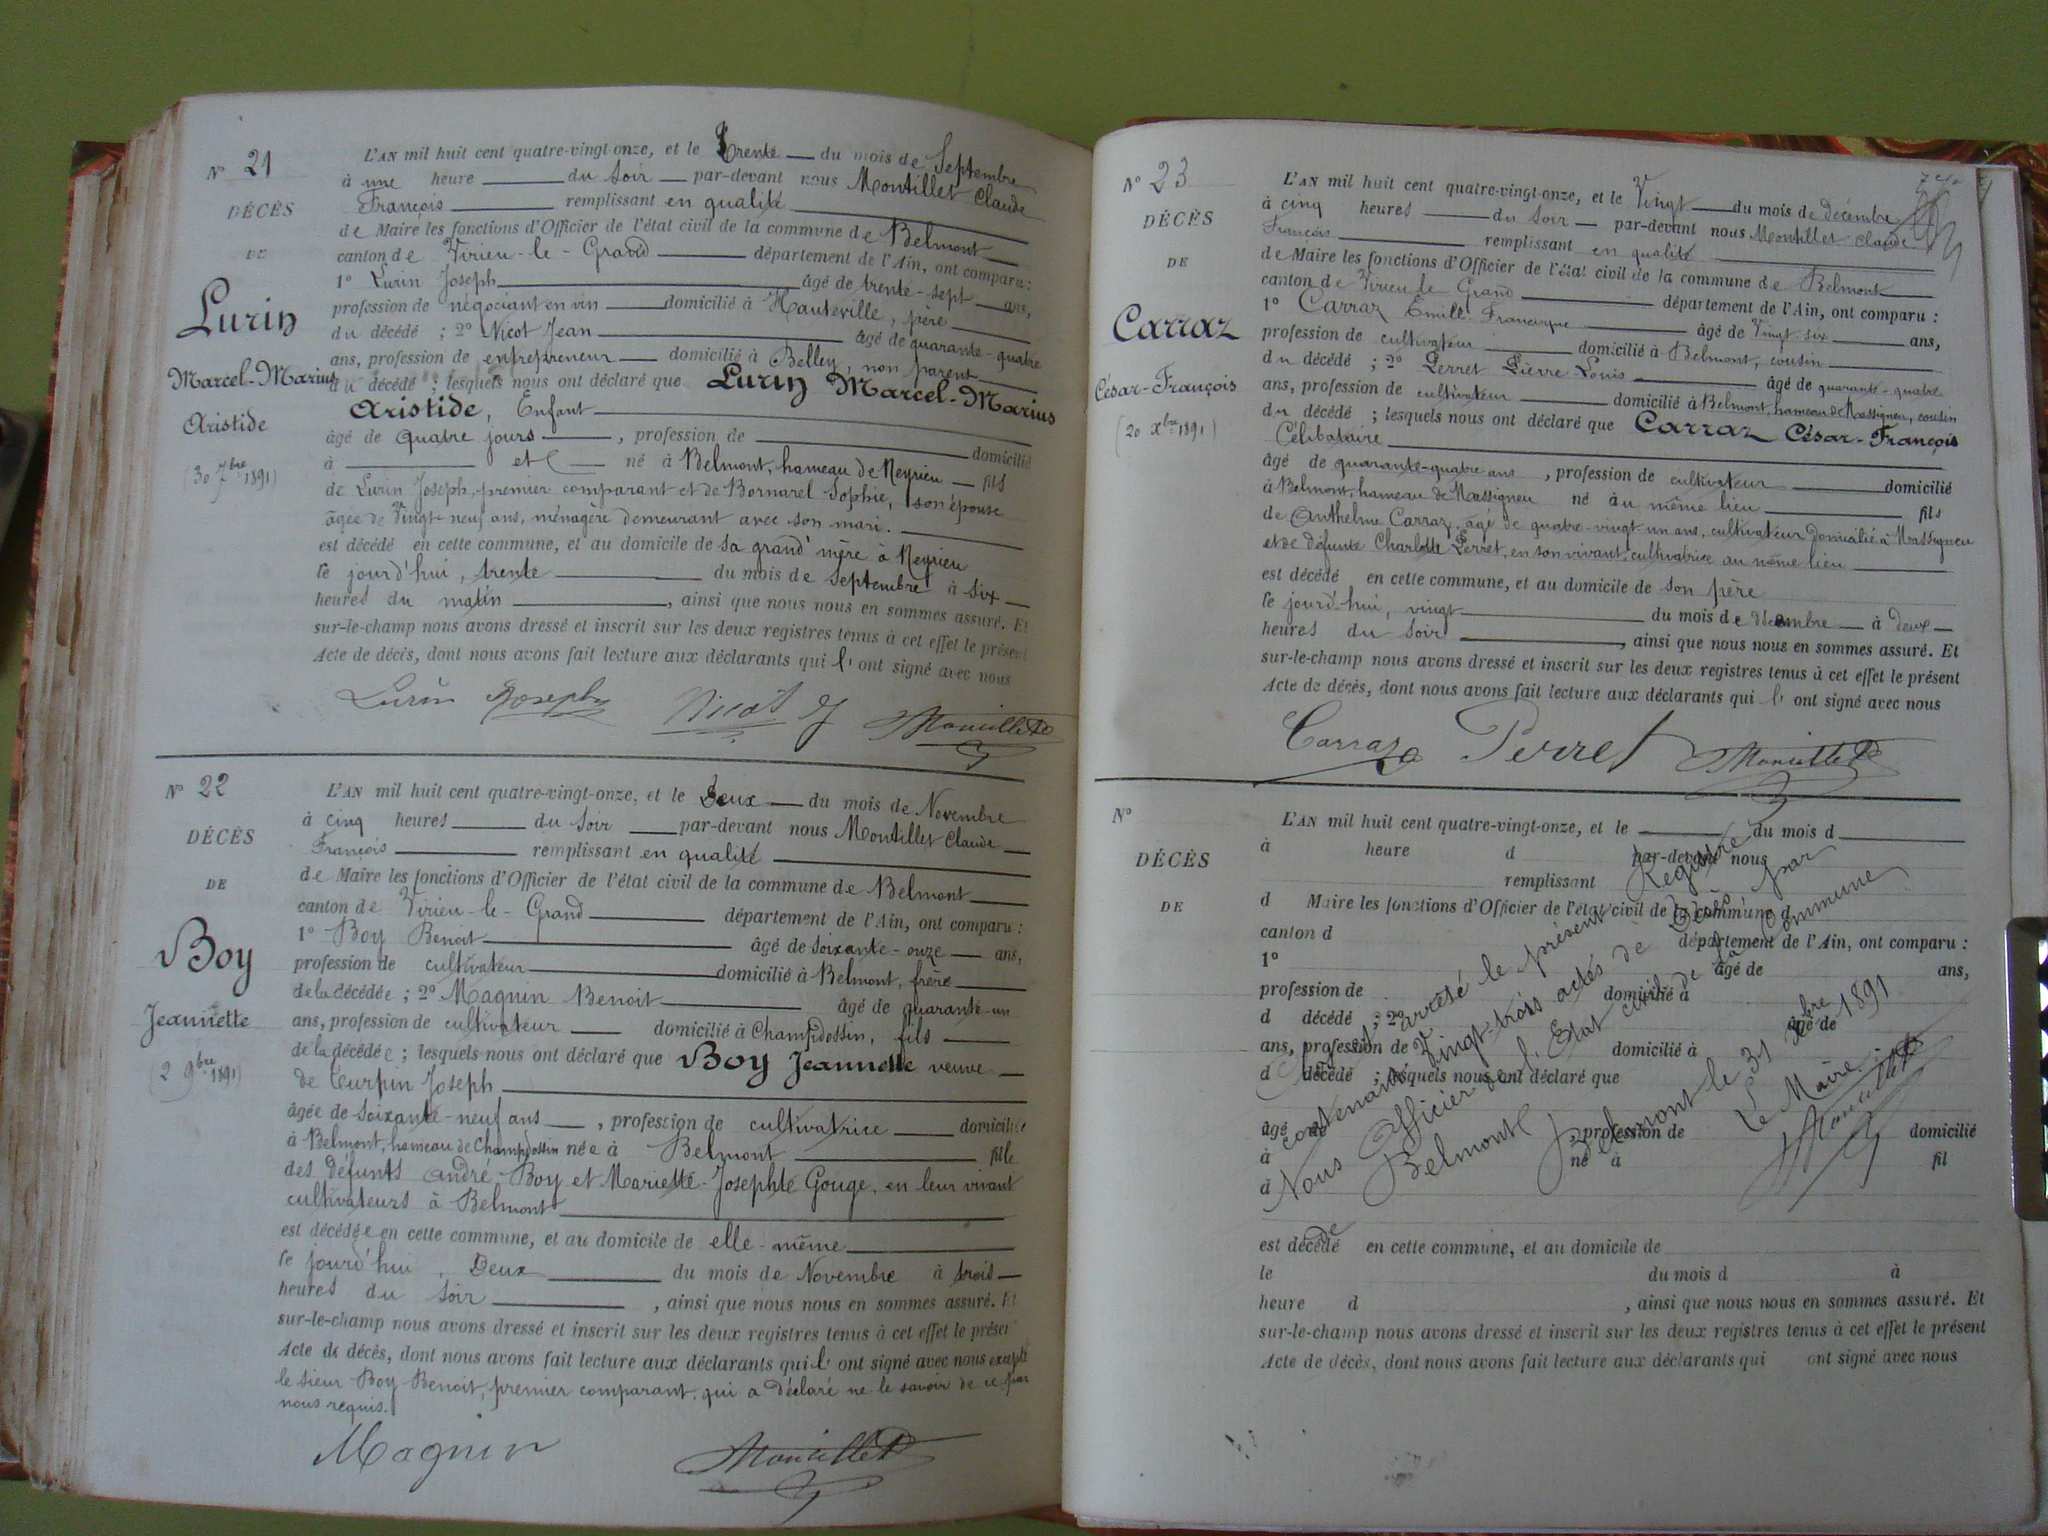 N° 21
DÉCÈS
DE
Lurin
Marcel-Marius
Aristide
(30 7bre 1891)
L'AN mil huit cent quatre-vingt-onze, et le trente du mois de Septembre
à une heure du soir par-devant nous Montillet Claude
François remplissant en qualité
de Maire les fonctions d'Officier de l'état civil de la commune de Belmont
canton de Virieu-le-Grand département de l'Ain, ont comparu :
1° Lurin Joseph âgé de trente-sept ans,
profession de négociant en vin domicilié à Hauteville, père
du décédé ; 2° Nicot Jean âgé de quarante-quatre
ans, profession de entrepreneur domicilié à Belley, non parent
du décédé ; lesquels nous ont déclaré que Lurin Marcel-Marius
Aristide, Enfant
âgé de quatre jours, profession de domicilié
à et né à Belmont, hameau de Neyrieu fils
de Lurin Joseph, premier comparant et de Bornarel Sophie, son épouse
âgée de Vingt-neuf ans, ménagère demeurant avec son mari.
est décédé en cette commune, et au domicile de sa grand'mère à Neyrieu
le jourd'hui, trente du mois de septembre à six
heures du matin, ainsi que nous nous en sommes assuré. Et
sur-le-champ nous avons dressé et inscrit sur les deux registres tenus à cet effet le présent
Acte de décès, dont nous avons fait lecture aux déclarants qui l'ont signé avec nous
Lurin Joseph Nicot J Montillet
N° 22
DÉCÈS
DE
Boy
Jeannette
(2 9bre 1891)
L'AN mil huit cent quatre-vingt-onze, et le Deux du mois de Novembre
à cinq heures du soir par-devant nous Montillet Claude
François remplissant en qualité
de Maire les fonctions d'Officier de l'état civil de la commune de Belmont
canton de Virieu-le-Grand département de l'Ain, ont comparu :
1° Boy Benoit âgé de soixante-onze ans,
profession de cultivateur domicilié à Belmont, frère
de la décédée ; 2° Magnin Benoit âgé de quarante-un
ans, profession de cultivateur domicilié à Champdossin, fils
de la décédée ; lesquels nous ont déclaré que Boy Jeannette veuve
de Turpin Joseph
âgée de soixante-neuf ans, profession de cultivatrice domiciliée
à Belmont, hameau de Champdossin née à Belmont fille
des défunts André Boy et Mariette-Josephte Gouge, en leur vivant
cultivateurs à Belmont
est décédée en cette commune, et au domicile de elle-même
le jourd'hui, Deux du mois de Novembre à trois
heures du soir, ainsi que nous nous en sommes assuré. Et
sur-le-champ nous avons dressé et inscrit sur les deux registres tenus à cet effet le présent
Acte de décès, dont nous avons fait lecture aux déclarants qui l'ont signé avec nous excepté
le sieur Boy Benoit, premier comparant, qui a déclaré ne le savoir de ce par
nous requis.
Magnin Montillet
N° 23
DÉCÈS
DE
Carraz
César-François
(20 Xbre 1891)
L'AN mil huit cent quatre-vingt-onze, et le Vingt du mois de décembre
à cinq heures du soir par-devant nous Montillet Claude
François remplissant en qualité
de Maire les fonctions d'Officier de l'état civil de la commune de Belmont
canton de Virieu le Grand département de l'Ain, ont comparu :
1° Carraz Emile Francisque âgé de vingt-six ans,
profession de cultivateur domicilié à Belmont, cousin
du décédé ; 2° Perret Pierre Louis âgé de quarante-quatre
ans, profession de cultivateur domicilié à Belmont, hameau de Massigneu, cousin
du décédé ; lesquels nous ont déclaré que Carraz César-François
Célibataire
âgé de quarante-quatre ans, profession de cultivateur domicilié
à Belmont, hameau de Massigneu né au même lieu fils
de Anthelme Carraz, âgé de quatre-vingt-un ans, cultivateur domicilié à Massigneu
et de défunte Charlotte Perret, en son vivant cultivatrice au même lieu
est décédé en cette commune, et au domicile de son père
le jourd'hui, vingt du mois de décembre à deux
heures du soir, ainsi que nous nous en sommes assuré. Et
sur-le-champ nous avons dressé et inscrit sur les deux registres tenus à cet effet le présent
Acte de décès, dont nous avons fait lecture aux déclarants qui l'ont signé avec nous
Carraz Perret Montillet
N°
DÉCÈS
DE
L'AN mil huit cent quatre-vingt-onze, et le du mois d
à heure d par-devant nous
remplissant
d Maire les fonctions d'Officier de l'état civil de la commune d
canton d département de l'Ain, ont comparu :
1° âgé de ans,
profession de domicilié à
d décédé ; 2° âgé de
ans, profession de domicilié à
d décédé ; lesquels nous ont déclaré que
âgé de, profession de domicilié
à né à fil
d
est décédé en cette commune, et au domicile de
le du mois d à
heure d, ainsi que nous nous en sommes assuré. Et
sur-le-champ nous avons dressé et inscrit sur les deux registres tenus à cet effet le présent
Acte de décès, dont nous avons fait lecture aux déclarants qui ont signé avec nous
arrêté le présent Registre
contenant vingt-trois actes de Décès, par
Nous Officier de l'Etat civil de la Commune
de Belmont
Belmont le 31 Xbre 1891
Le Maire :
Montillet